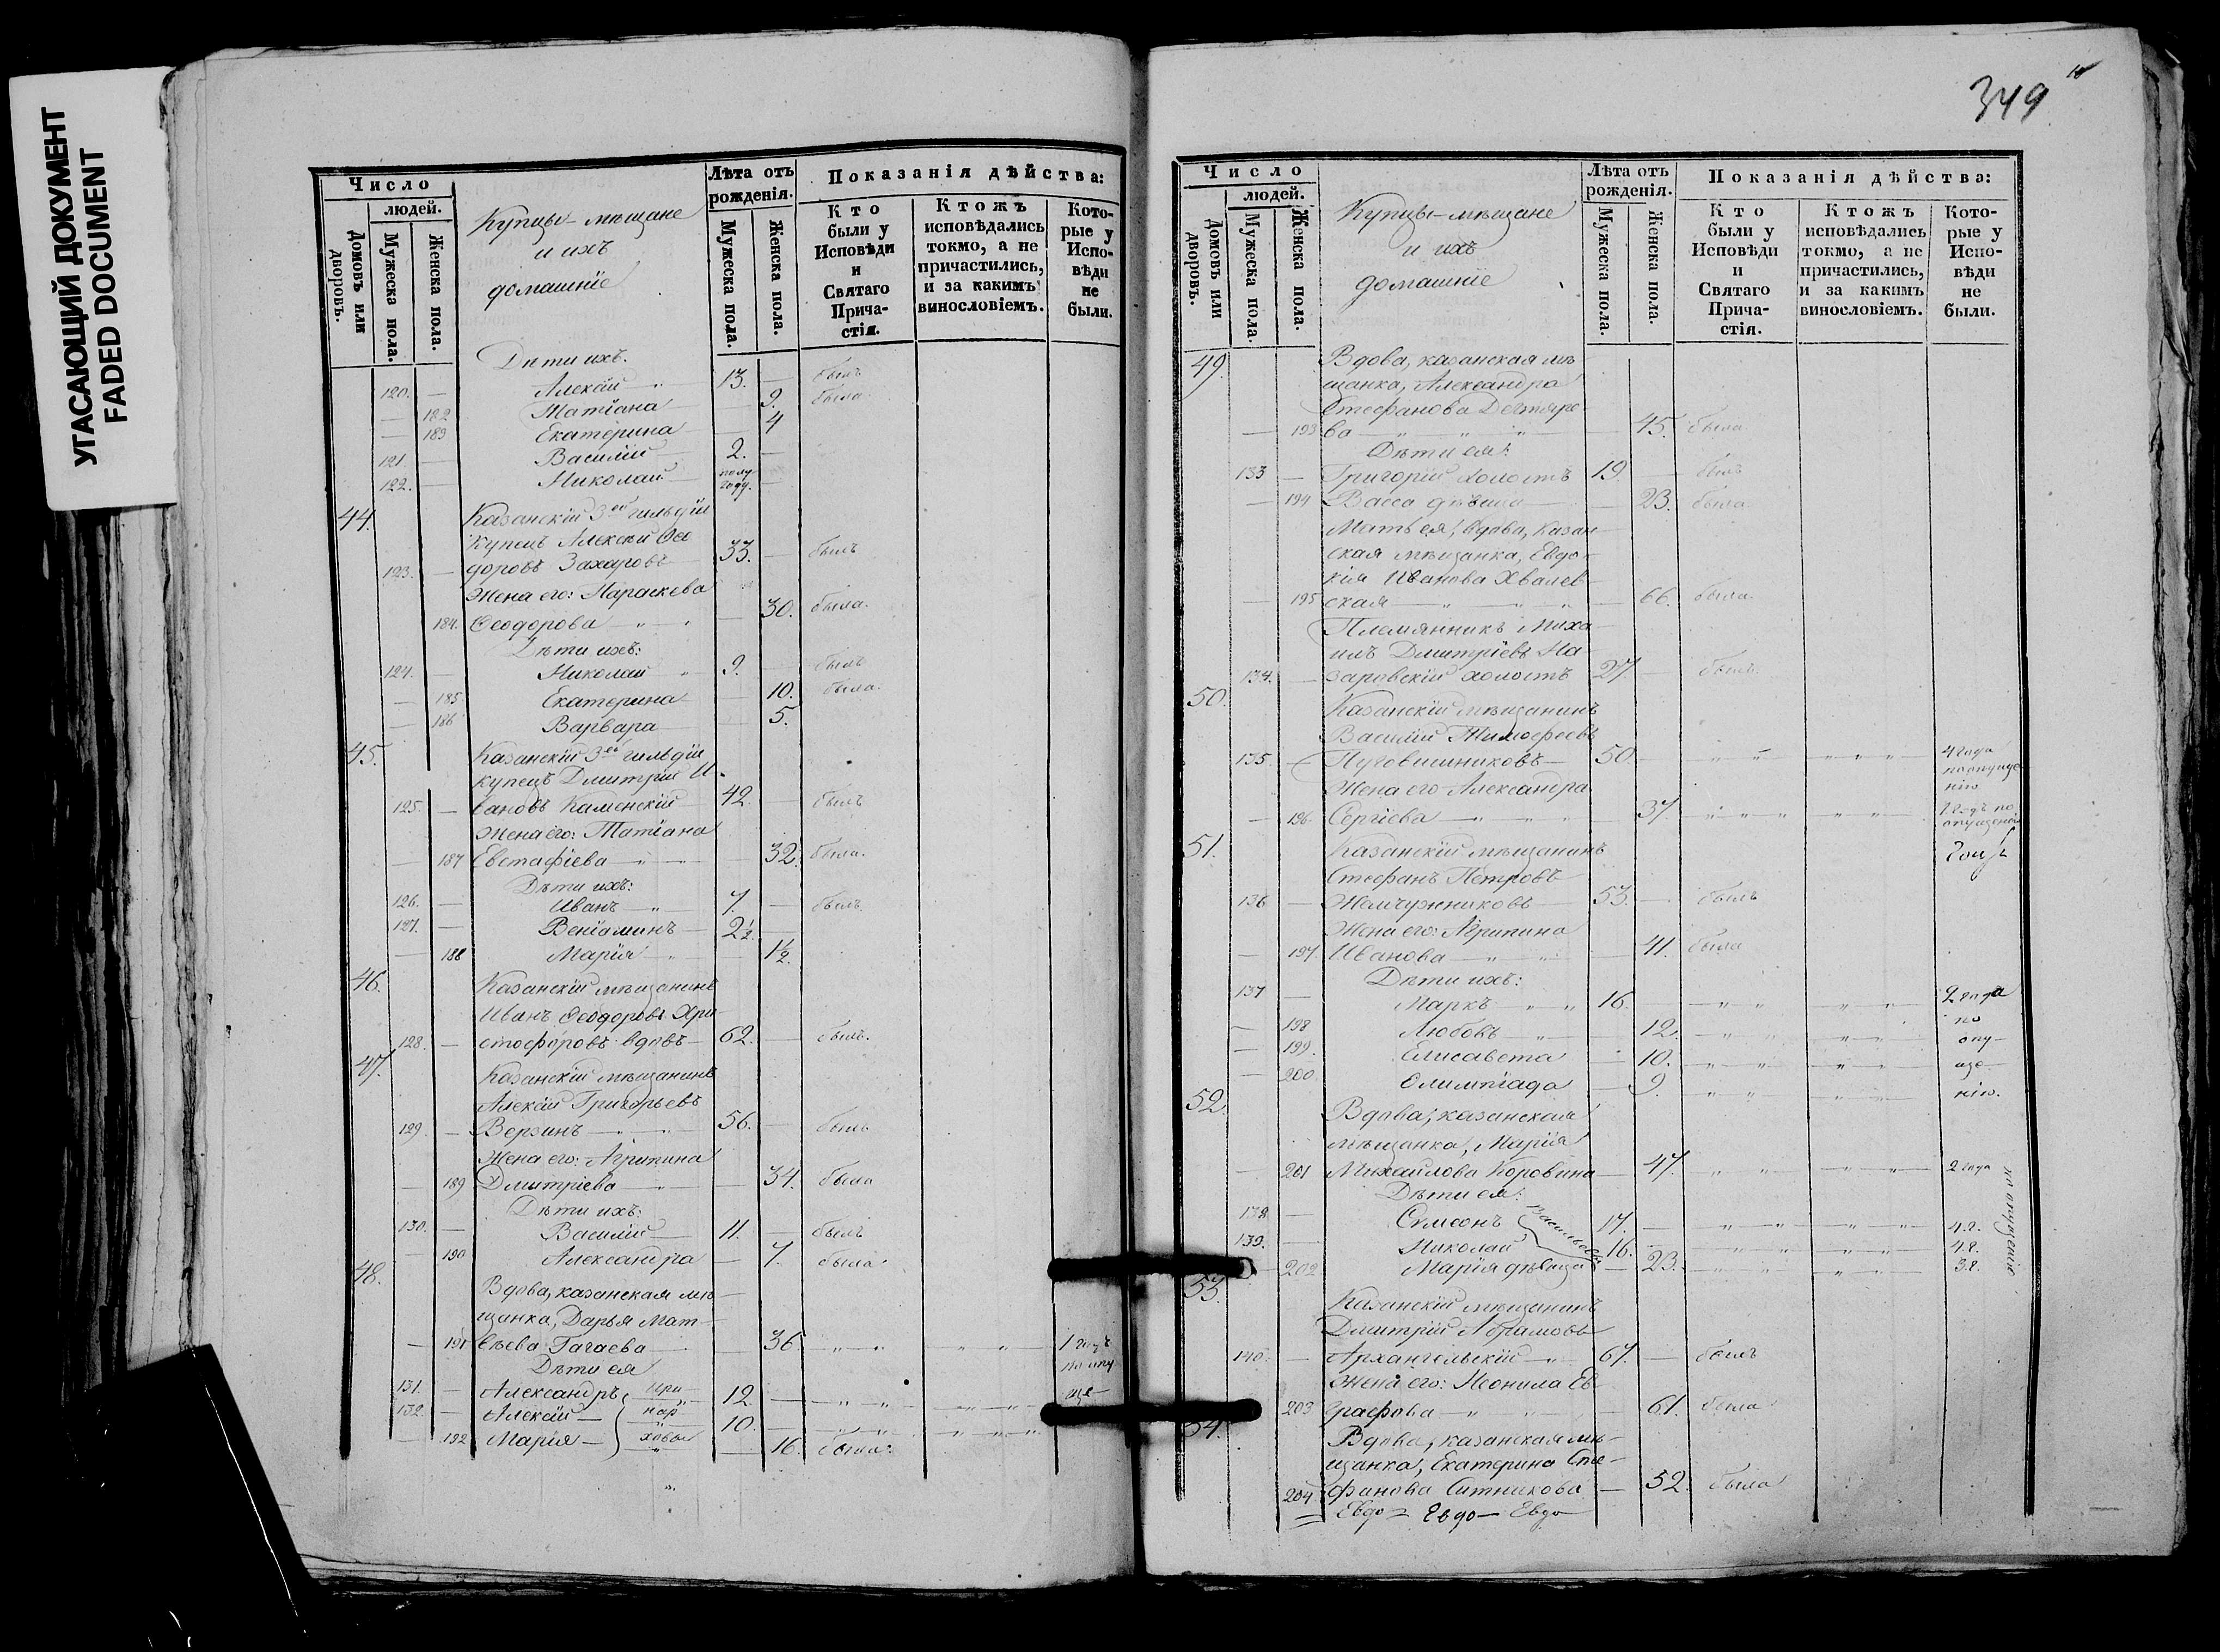 УГАСАЮЩИЙ ДОКУМЕНТ
FADED DOCUMENT
Число
людей.
Домовъ или дворовъ.
Мужеска пола.
Женска пола.
Купцы - мѣщане
и ихъ
домашніе
Лѣта отъ рожденія.
Мужеска пола.
Женска пола.
Показанія дѣйства:
Кто были у Исповѣди и Святаго Прича-стія.
Ктожъ исповѣдались токмо, а не причастились, и за какимъ винословіемъ.
Кото-рые у Испо-вѣди не были.
Дѣти ихъ.
120. — Алексѣй 13. — былъ
— 182 Татіана — 9. была
— 183 Екатерина — 4
121. — Василій 2. —
122. — Николай полу году. —
44. Казанскій 3ей гильдіи
купецъ Алексѣй Ѳео
123. — доровъ Захаровъ 33. — былъ
Жена его: Параскева
184. Ѳеодорова — 30. была.
Дѣти ихъ:
124. — Николай 9. — былъ
— 185. Екатерина — 10. была.
— 186 Варвара — 5.
45. Казанскій 3ей гильдіи
купецъ Дмитрій И-
125. — вановъ Каменскій 42. — былъ
Жена его: Татіана
— 187 Евстафіева — 32. была.
Дѣти ихъ:
126. — Иванъ 7. — былъ
127. — Веніаминъ 2½ —
— 188 Марія — 1½.
46. Казанскій мѣщанинъ
Иванъ Ѳеодоровъ Хри-
128. — стофоровъ вдовъ 62. — былъ.
47. Казанскій мѣщанинъ
Алексѣй Григорьевъ
129. — Верзинъ 56. — былъ
Жена его: Агрипина
— 189 Дмитріева — 34. была
Дѣти ихъ:
130. — Василій 11. — былъ
— 190 Александра — 7. была
48. Вдова, казанская мѣ-
щанка, Дарья Мат-
— 191 вѣева Гагаева — 36 1 годъ
Дѣти ея по опу
131. — Александръ 12. — ще-
132. — Алексѣй 10. —
— 192 Марія — 16. была.
349
Число
людей.
Домовъ или дворовъ.
Мужеска пола.
Женска пола.
Купцы - мѣщане
и ихъ
домашніе
Лѣта отъ рожденія.
Мужеска пола.
Женска пола.
Показанія дѣйства:
Кто были у Исповѣди и Святаго Прича-стія.
Ктожъ исповѣдались токмо, а не причастились, и за какимъ винословіемъ.
Кото-рые у Испо-вѣди не были.
49. Вдова, казанская мѣ
щанка, Александра
Стефанова Дегтяре
— 193 ва — 45. была
Дѣти ея:
133 — Григорій холостъ 19. — былъ
— 194 Васса дѣвица — 23. была
Мать ея, вдова, Казан-
ская мѣщанка, Евдо-
кія Иванова Хвалев-
— 195 ская — 66. была.
Племянникъ Миха-
илъ Дмитріевъ На-
134. — заровскій холостъ 27. — былъ.
50. Казанскій мѣщанинъ
Василій Тимофеевъ
135. — Пуговишниковъ 50. — 4 года
по опуще
Жена его Александра нію
— 196. Сергіева — 37. 1 годъ по
опущенію
51. Казанскій мѣщанинъ
Стефанъ Петровъ
136 — Жемчужниковъ 53. — былъ
Жена его: Агрипина
— 197 Иванова — 41. была
Дѣти ихъ:
137 — Маркъ 16. — 2 года
— 198 Любовь — 12. по
— 199. Елисавета — 10. опу-
— 200 Олимпіада — 9. ще
нію.
52. Вдова, казанская
мѣщанка, Марія
— 201 Михаилова Коровина — 47. 2 года
Дѣти ея:
138 — Симеонъ 17. — 4 г.
139. — Николай 16. — 4 г.
Васильевы
— 202 Марія дѣвица — 23. 3 г.
по опущенію
53. Казанскій мѣщанинъ
Дмитрій Абрамовъ
140. — Архангельскій 67. — былъ
Жена его: Неонила Ев
203 графова — 61. была
54. Вдова, казанская мѣ-
щанка, Екатерина Сте-
204 фанова Ситникова — 52. была
Евдо Евдо — Евдо